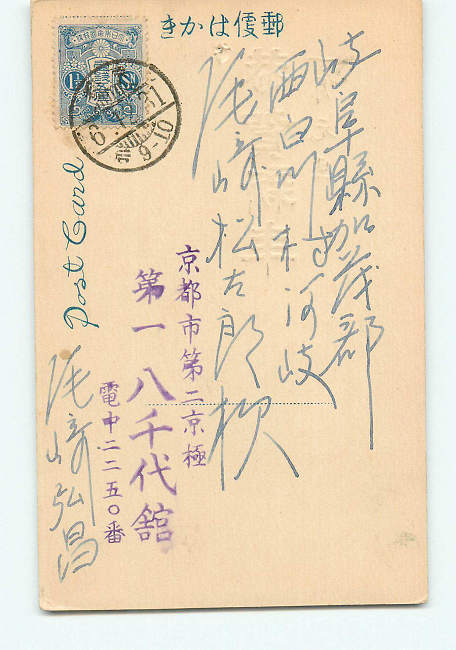 郵便はかき
岐阜縣加茂郡
西白川村河岐
尾﨑松太郎様
京都市第二京極
第一八千代舘
電中二二五〇番
尾﨑弘昌
Post Card
9-10